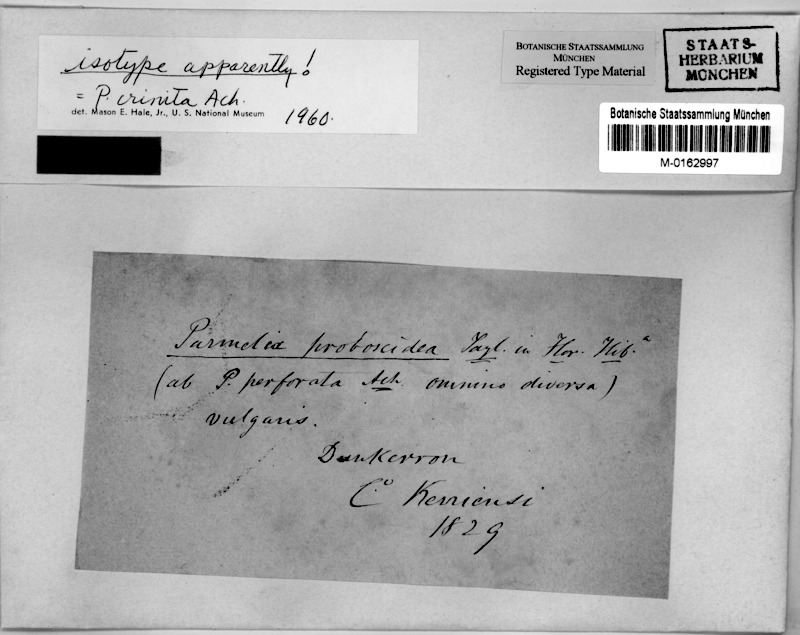 isotype apparently!
= P. crinita Ach.
det. Mason E. Hale, Jr., U. S. National Museum 1960.
BOTANISCHE STAATSSAMMLUNG
MÜNCHEN
Registered Type Material
STAATS-
HERBARIUM
MÜNCHEN
Botanische Staatssammlung München
M-0162997
Parmelia proboscidea Tayl. in Flor. Hib.ª
(ab P. perforata Ach. omnino diversa)
vulgaris.
Dunkerron
Cº Kerriensi
1829